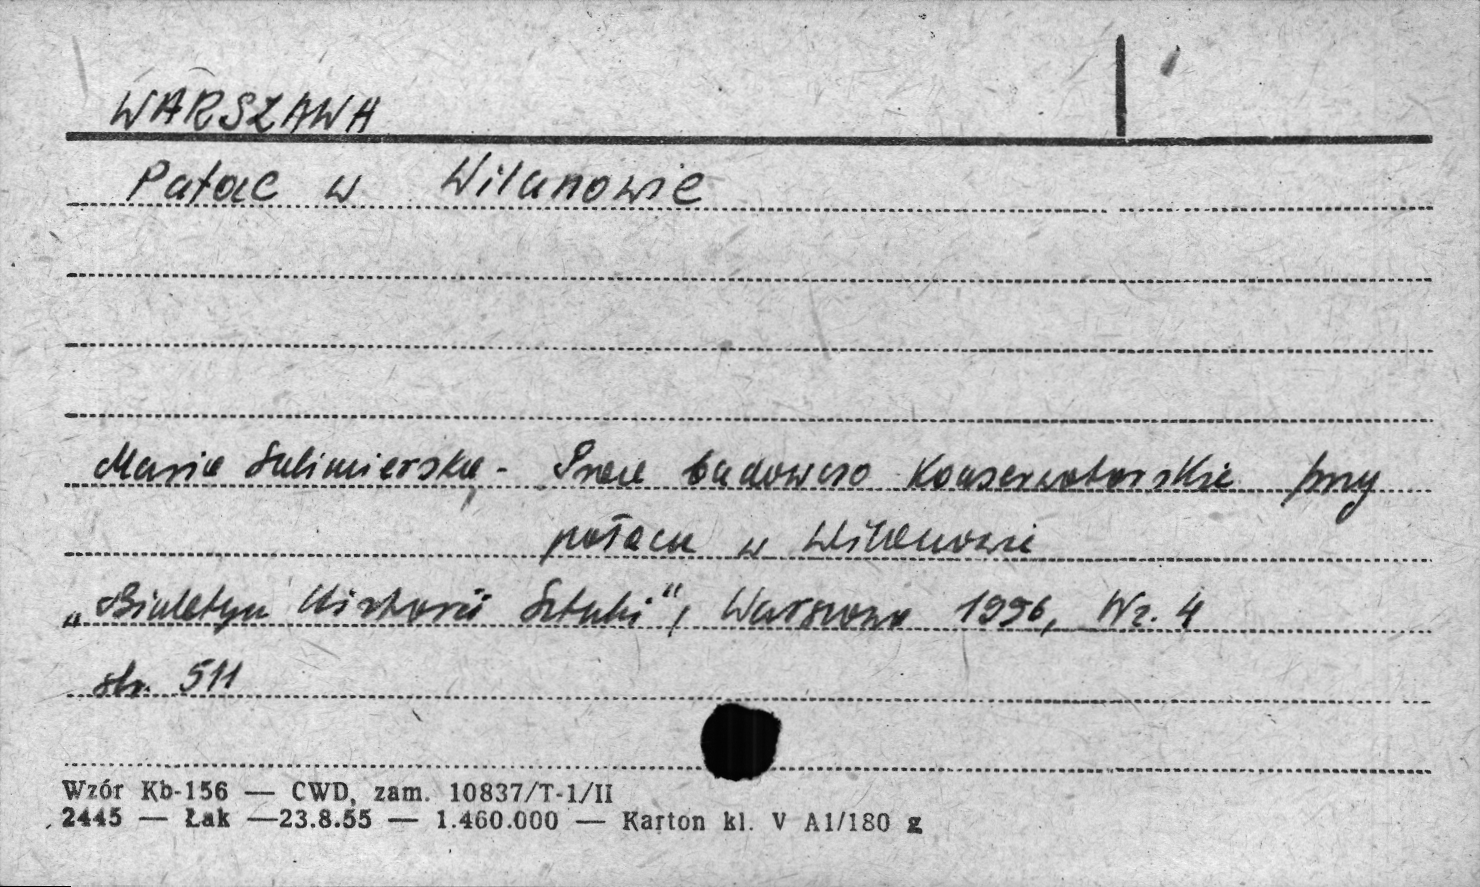 WARSZAWA
Pałac w Wilanowie
Maria Sulimierska - Prace budowlano konserwatorskie przy
pałacu w Wilanowie
„Biuletyn Historii Sztuki", Warszawa 1956, Nr. 4
str. 511
Wzór Kb-156 — CWD, zam. 10837/T-1/II
2445 — Łak —23.8.55 — 1.460.000 — Karton kl. V A1/180 g